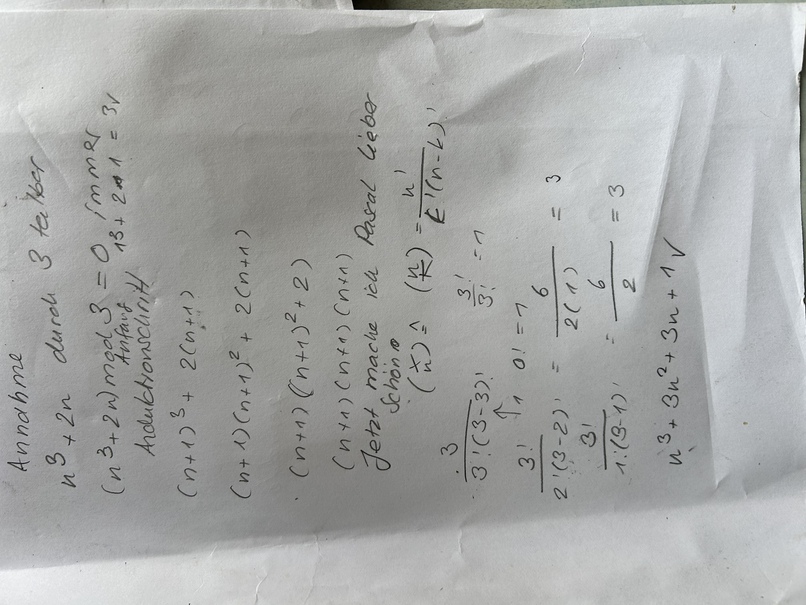 Annahme
n³ + 2n durch 3 teilber
(n³ + 2n) mod 3 = 0 immer
Anfang 1³ + 2·1 = 3✓
Induktionschritt
(n+1)³ + 2(n+1)
(n+1)(n+1)² + 2(n+1)
(n+1)((n+1)² + 2)
(n+1)(n+1)(n+1)
Jetzt mache ich Pascal lieber
Schön
(x/n) ≙ (n/k) = n!/k!(n-k)!
3/3!(3-3)! 3!/3! = 1
↑1 0! = 1
3!/2!(3-2)! = 6/2(1) = 3
3!/1!(3-1)! = 6/2 = 3
n³ + 3n² + 3n + 1 ✓